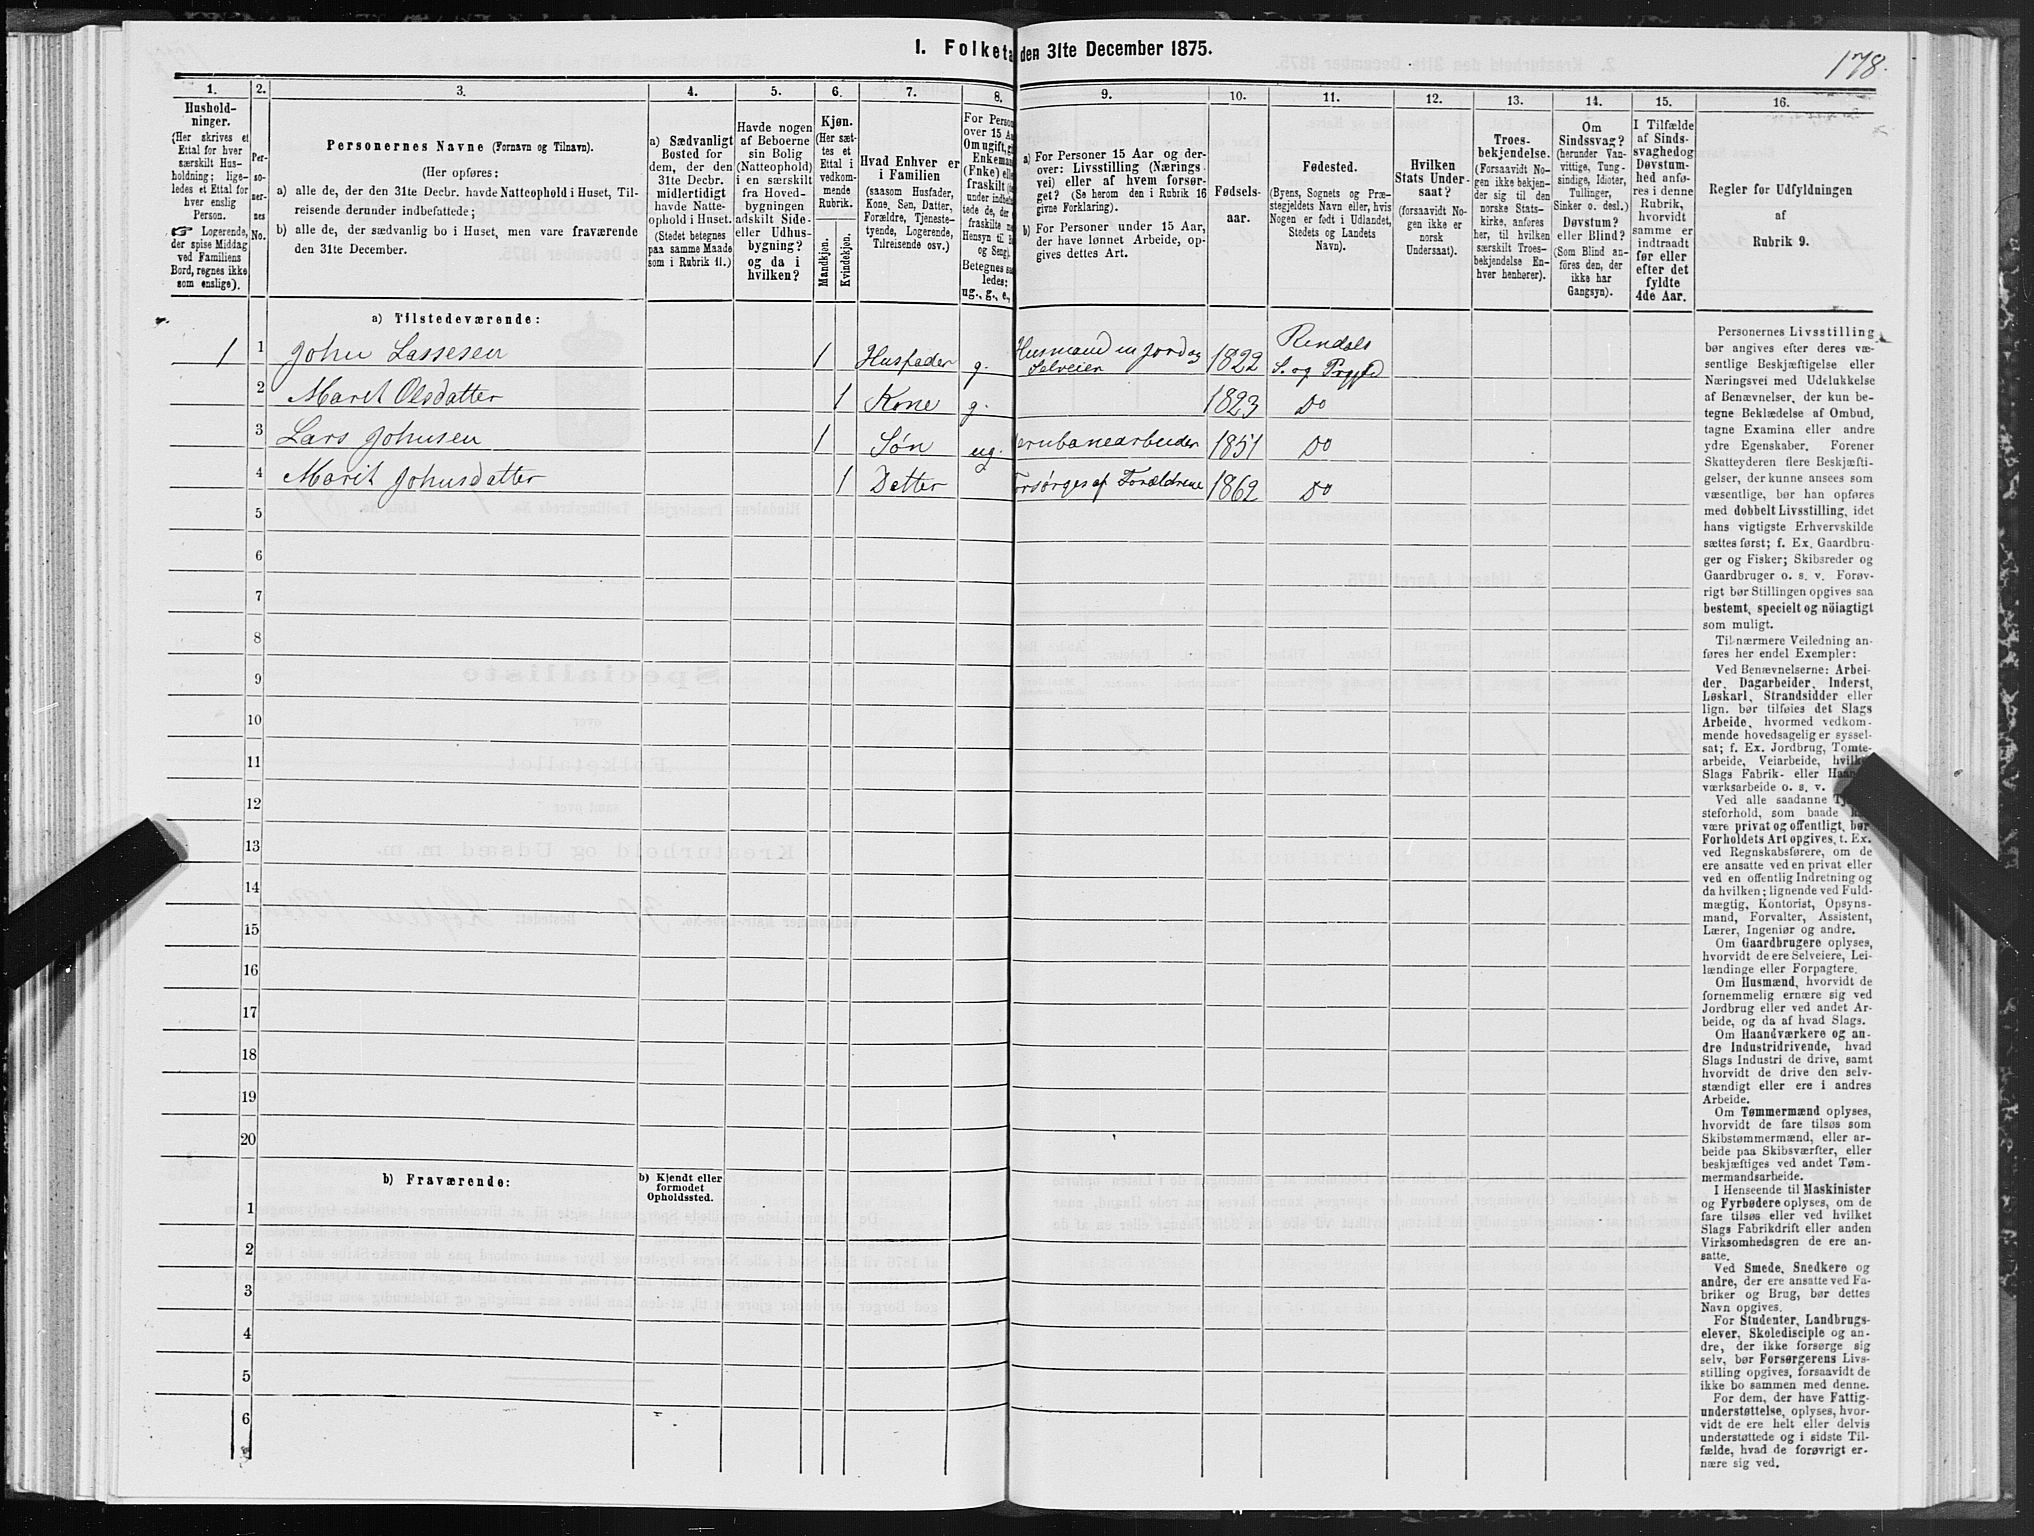 I. Folketa den 31te December 1875.
178.
1. 2. 3. 4. 5. 6. 7. 8. 9. 10. 11. 12. 13. 14. 15. 16.
Hushold-
ninger.
(Her skrives et
Ettal for hver
særskilt Hus-
holdning; lige-
ledes et Ettal for
hver enslig
Person.
☞ Logerende,
der spise Middag
ved Familiens
Bord, regnes ikke
som enslige).
Per-
so-
ner-
nes
No.
Personernes Navne (Fornavn og Tilnavn).
(Her opføres:
a) alle de, der den 31te Decbr. havde Natteophold i Huset, Til-
reisende derunder indbefattede;
b) alle de, der sædvanlig bo i Huset, men vare fraværende
den 31te December.
a) Sædvanligt
Bosted for
dem, der den
31te Decbr.
midlertidigt
havde Natte-
ophold i Huset.
(Stedet betegnes
paa samme Maade
som i Rubrik 11.)
Havde nogen
af Beboerne
sin Bolig
(Natteophold)
i en særskilt
fra Hoved-
bygningen
adskilt Side-
eller Udhus-
bygning?
og da i
hvilken?
Kjøn.
(Her sæt-
tes et
Ettal i
vedkom-
mende
Rubrik.
Mandkjøn.
Kvindekjøn.
Hvad Enhver er
i Familien
(saasom Husfader,
Kone, Søn, Datter,
Forældre, Tjeneste-
tyende, Logerende,
Tilreisende osv.)
For Person
over 15 Aa
Om ugift, gi
Enkeman
(Fnke) elle
fraskilt (de
under indbefat
tede de, der e
fraskilte m
Hensyn til B
og Seng).
Betegnes saa
ledes:
ug., g., e.,
a) For Personer 15 Aar og der-
over: Livsstilling (Nærings-
vei) eller af hvem forsør-
get? (Se herom den i Rubrik 16
givne Forklaring).
b) For Personer under 15 Aar,
der have lønnet Arbeide, op-
gives dettes Art.
Fødsels-
aar.
Fødested.
(Byens, Sognets og Præ-
stegjeldets Navn eller, hvis
Nogen er født i Udlandet,
Stedets og Landets
Navn).
Hvilken
Stats Under-
saat?
(forsaavidt No-
gen ikke er
norsk
Undersaat).
Troes-
bekjendelse.
(Forsaavidt No-
gen ikke bekjen-
der sig til den
norske Stats-
kirke, anføres
her, til hvilken
særskilt Troes-
bekjendelse En-
hver henhører).
Om
Sindssvag?
(herunder Van-
vittige, Tung-
sindige, Idioter,
Tullinger,
Sinker o. desl.)
Døvstum?
eller Blind?
(Som Blind an-
føres den, der
ikke har
Gangsyn).
I Tilfælde
af Sinds-
svaghed og
Døvstum-
hed anfø-
res i denne
Rubrik,
hvorvidt
samme er
indtraadt
før eller
efter det
fyldte
4de Aar.
Regler for Udfyldningen
af
Rubrik 9.
a) Tilstedeværende:
1 1 John Lassesen 1 Husfader g. Husmand m jord og Selveier 1822 Rendals S. og Prgjld
2 Marit Olsdatter 1 Kone g. 1823 Do
3 Lars Johnsen 1 Søn ug. ernbanearbeider 1851 Do
4 Marit Johnsdatter 1 Datter orsørges af Forældrene 1862 Do
5
6
7
8
9
10
11
12
13
14
15
16
17
18
19
20
b) Fraværende:
b) Kjendt eller
formodet
Opholdssted.
1
2
3
4
5
6
Personernes Livsstilling
bør angives efter deres væ-
sentlige Beskjæftigelse eller
Næringsvei med Udelukkelse
af Benævnelser, der kun be-
tegne Beklædelse af Ombud,
tagne Examina eller andre
ydre Egenskaber. Forener
Skatteyderen flere Beskjæfti-
gelser, der kunne ansees som
væsentlige, bør han opføres
med dobbelt Livsstilling, idet
hans vigtigste Erhvervskilde
sættes først; f. Ex. Gaardbru-
ger og Fisker; Skibsreder og
Gaardbruger o. s. v. Forøv-
rigt bør Stillingen opgives saa
bestemt, specielt og nöiagtigt
som muligt.
Til nærmere Veiledning an-
føres her endel Exempler:
Ved Benævnelserne: Arbei-
der, Dagarbeider, Inderst,
Løskarl, Strandsidder eller
lign. bør tilføies det Slags
Arbeide, hvormed vedkom-
mende hovedsagelig er syssel-
sat; f. Ex. Jordbrug, Tomte-
arbeide, Veiarbeide, hvilke
Slags Fabrik- eller Haan
værksarbeide o. s. v.
Ved alle saadanne Tj
steforhold, som baade k
være privat og offentligt, bør
Forholdets Art opgives, t. Ex.
ved Regnskabsførere, om de
ere ansatte ved en privat eller
ved en offentlig Indretning og
da hvilken; lignende ved Fuld-
mægtig, Kontorist, Opsyns-
mand, Forvalter, Assistent,
Lærer, Ingeniør og andre.
Om Gaardbrugere oplyses,
hvorvidt de ere Selveiere, Lei-
lændinge eller Forpagtere.
Om Husmænd, hvorvidt de
fornemmelig ernære sig ved
Jordbrug eller ved andet Ar-
beide, og da af hvad Slags.
Om Haandværkere og an-
dre Industridrivende, hvad
Slags Industri de drive, samt
hvorvidt de drive den selv-
stændigt eller ere i andres
Arbeide.
Om Tømmermænd oplyses,
hvorvidt de fare tilsøs som
Skibstømmermænd, eller ar-
beide paa Skibsværfter, eller
beskjæftiges ved andet Tøm-
mermandsarbeide.
I Henseende til Maskinister
og Fyrbødere oplyses, om de
fare tilsøs eller ved hvilket
Slags Fabrikdrift eller anden
Virksomhedsgren de ere an-
satte.
Ved Smede, Snedkere og
andre, der ere ansatte ved Fa-
briker og Brug, bør dettes
Navn opgives.
For Studenter, Landbrugs-
elever, Skoledisciple og an-
dre, der ikke forsørge sig
selv, bør Forsørgerens Livs-
stilling opgives, forsaavidt de
ikke bo sammen med denne.
For dem, der have Fattig-
understøttelse, oplyses, hvor-
vidt de ere helt eller delvis
understøttede og i sidste Til-
fælde, hvad de forøvrigt er-
nære sig ved.